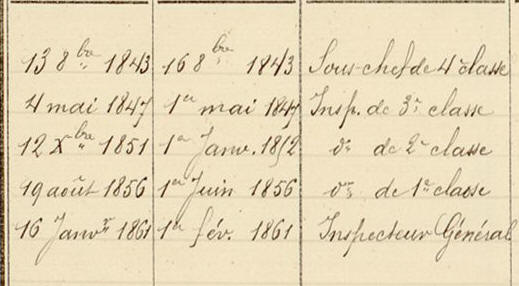 13 8bre 1843 16 8bre 1843 Sous-chef de 4e classe
4 mai 1847 1er mai 1847 Insp. de 3e classe
12 Xbre 1851 1er Janv. 1852 do de 2e classe
19 août 1856 1er Juin 1856 do de 1re classe
16 Janvr 1861 1er fév. 1861 Inspecteur Général